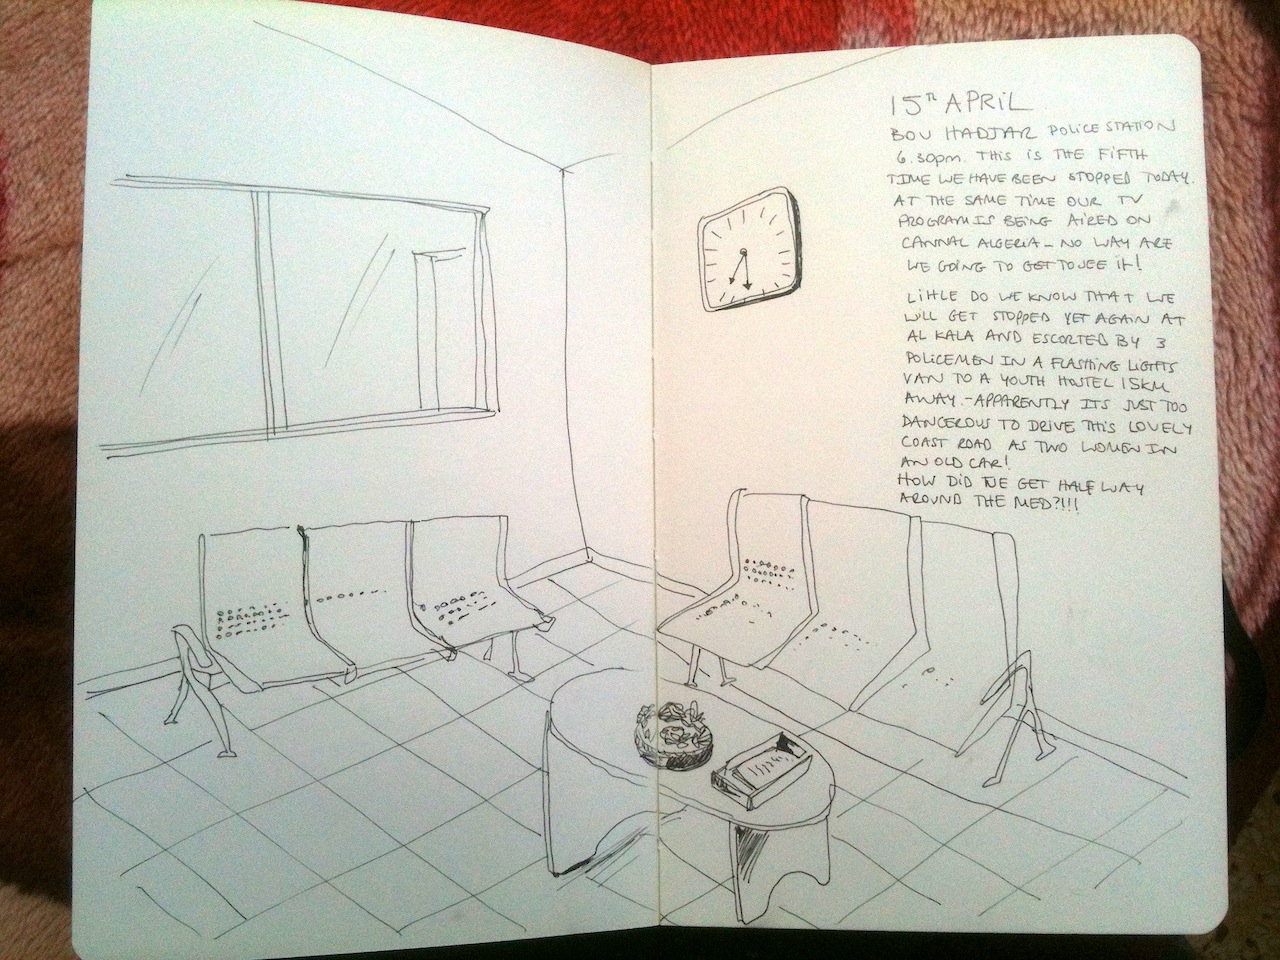 15TH APRIL
BOU HADJAR POLICE STATION
6.30pm. THIS IS THE FIFTH
TIME WE HAVE BEEN STOPPED TODAY.
AT THE SAME TIME OUR TV
PROGRAM IS BEING AIRED ON
CANNAL ALGERIA - NO WAY ARE
WE GOING TO GET TO SEE it!
LittLE DO WE KNOW THAT WE
WILL GET STOPPED YET AGAIN AT
AL KALA AND ESCORTED BY 3
POLICEMEN IN A FLASHING LIGHTS
VAN TO A YOUTH HOSTEL 15KM
AWAY. - APPARENTLY ITS JUST TOO
DANGEROUS TO DRIVE THIS LOVELY
COAST ROAD AS TWO WOMEN IN
AN OLD CAR!
HOW DID WE GET HALF WAY
AROUND THE MED?!!!